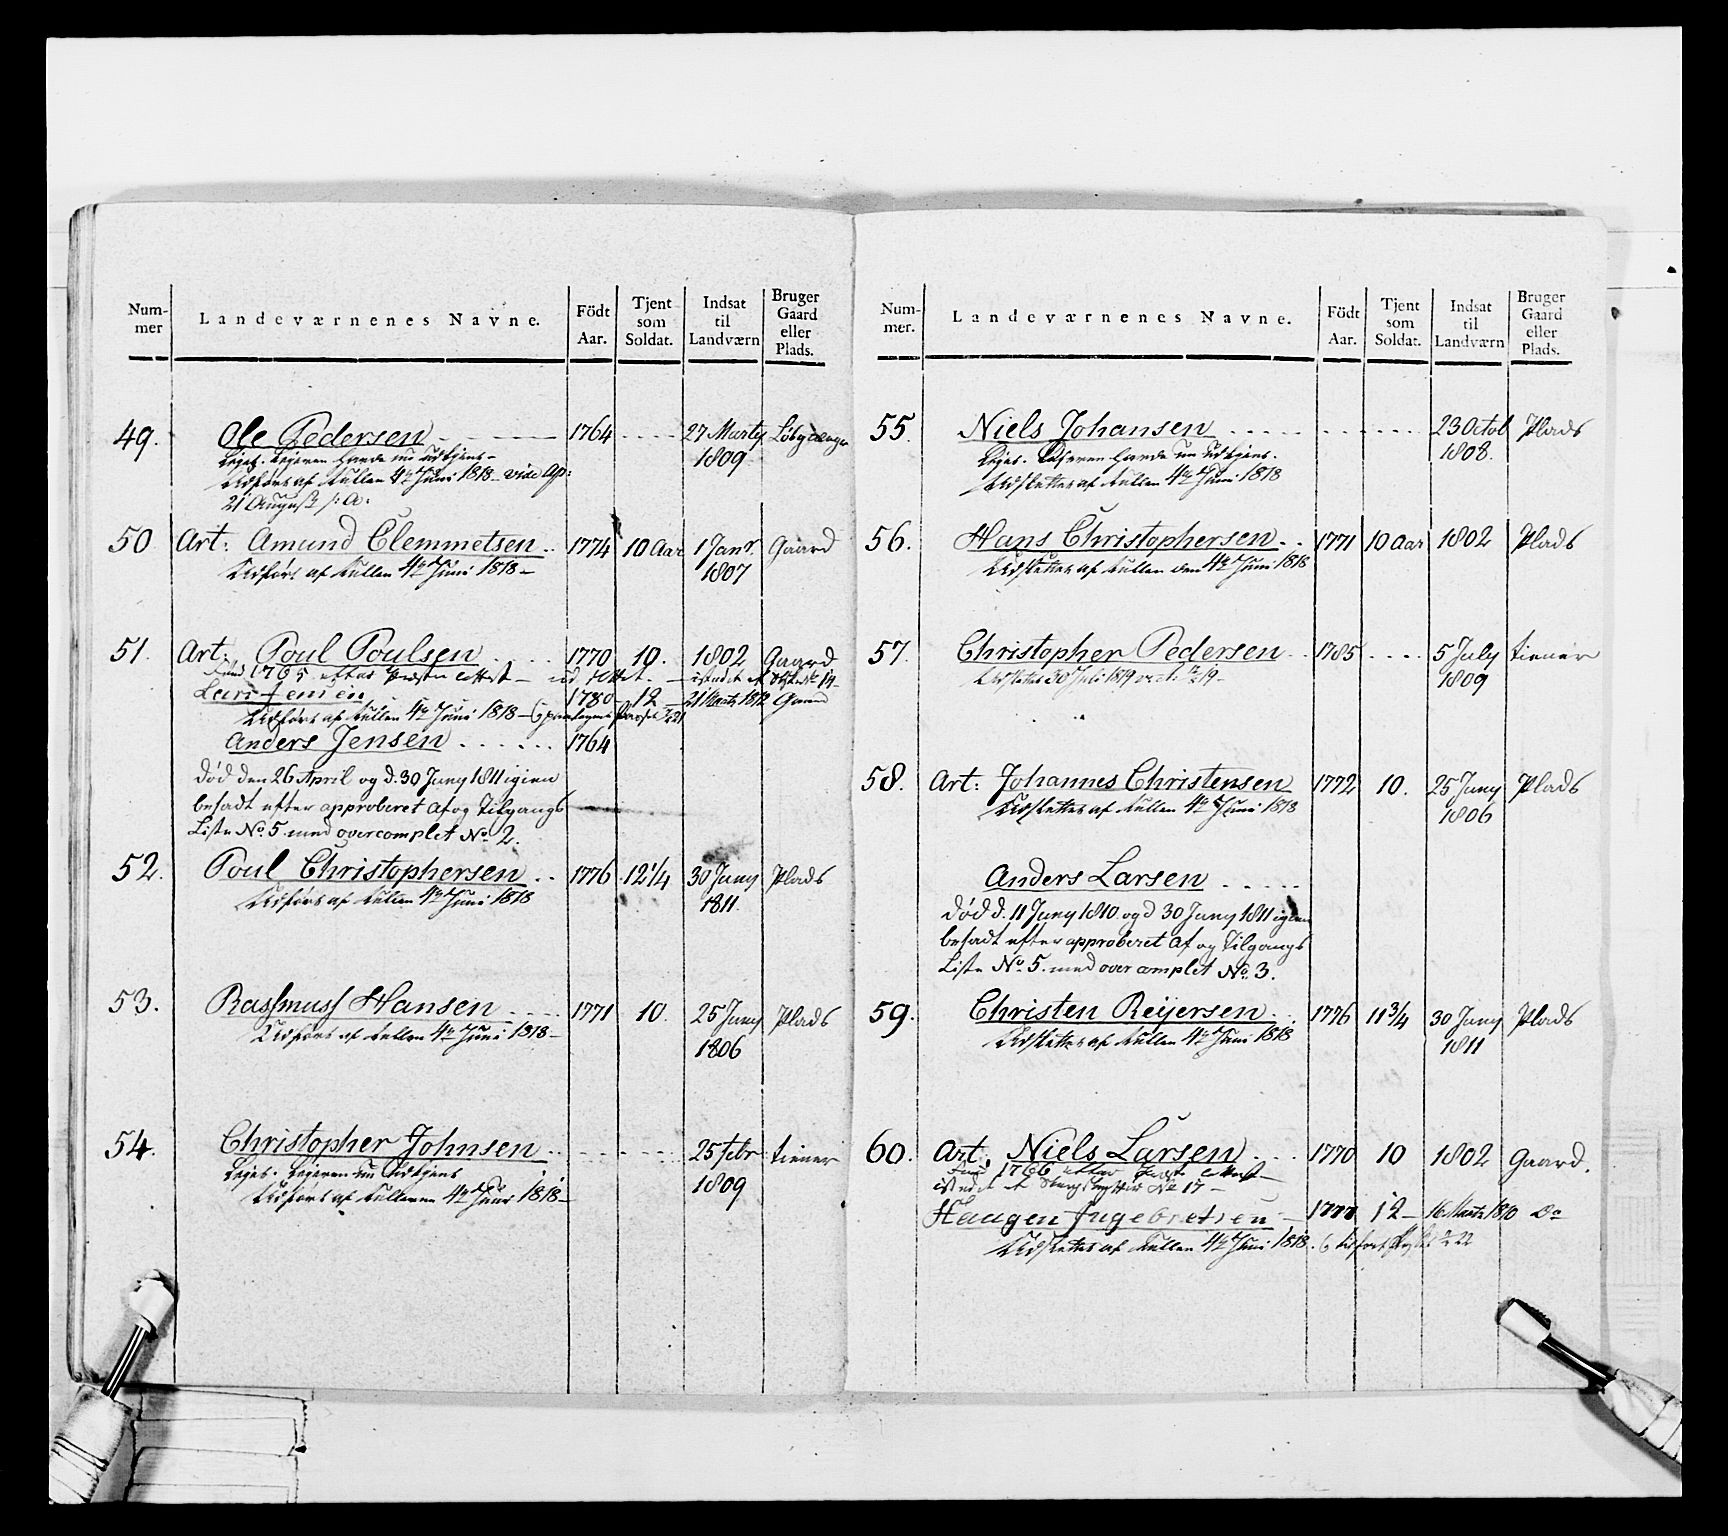 Num-
mer
Landeværnenes Navne.
Födt
Aar.
Tjent
som
Soldat.
Indsat
til
Landværn
Bruger
Gaard
eller
Plads.
49. Ole Pedersen 1764 27 Marty
1809
Udförs af Rullen 4de Juni 1818 vide Ap:
21 August s: A:
50 Art: Amund Clemmetsen 1774 10 Aar 1 Janr. Gaard
1807
Udförs af Rullen 4de Juni 1818
51. Art: Poul Poulsen 1770 10. 1802 Gaard
Född 1765 efter Attest
Lars Jensen 1780 12 21 Marts 1812 Gaard
Udförs af Rullen 4de Juni 1818
Anders Jensen 1764
död den 26 April og d. 30 Juny 1811 igien
besadt efter approberet Af og Tilgangs
Liste No. 5 med overcomplet No. 2.
52. Poul Christophersen 1776 12 1/4 30 Juny Plads
1811.
Udförs af Rullen 4de Juni 1818
53. Rassmuss Hansen 1771 10. 25 Juny Plads
1806
Udförs af Rullen 4de Juni 1818
54. Christopher Johnsen 25 febr tiener
1809
Udförs af Rulleren 4de Juni 1818
Num-
mer.
Landeværnenes Navne.
Födt
Aar.
Tjent
som
Soldat.
Indsat
til
Landværn
Bruger
Gaard
eller
Plads.
55. Niels Johansen 23 Octob Plads
1808.
Udslettes af Rullen 4de Juni 1818
56. Hans Christophersen 1771 10 Aar 1802 Plads
Udslettes af Rullen den 4de Juni 1818
57. Christopher Pedersen 1785 5 July tiener
1809
Udslettes 30 Juli 1819
58. Art: Johannes Christensen 1772 10. 25 Juny Plads
1806
Udslettes af Rullen 4de Juni 1818
Anders Larsen
död d. 11 Juny 1810 og d 30 Juny 1811 igien
besadt efter approberet Af og Tilgangs
Liste No. 5. med over complet No. 3.
59. Christen Reijersen 1776 11 3/4 30 Juny Plads
1811
Udslettes af Rullen 4de Juni 1818
60. Art: Niels Larsen 1770 10 1802 Gaard.
Född 1766 efter Attest
Haagen Ingebretsen 1777 12 16 Marts 1810 Do
Udslettes af Rullen 4de Juni 1818.